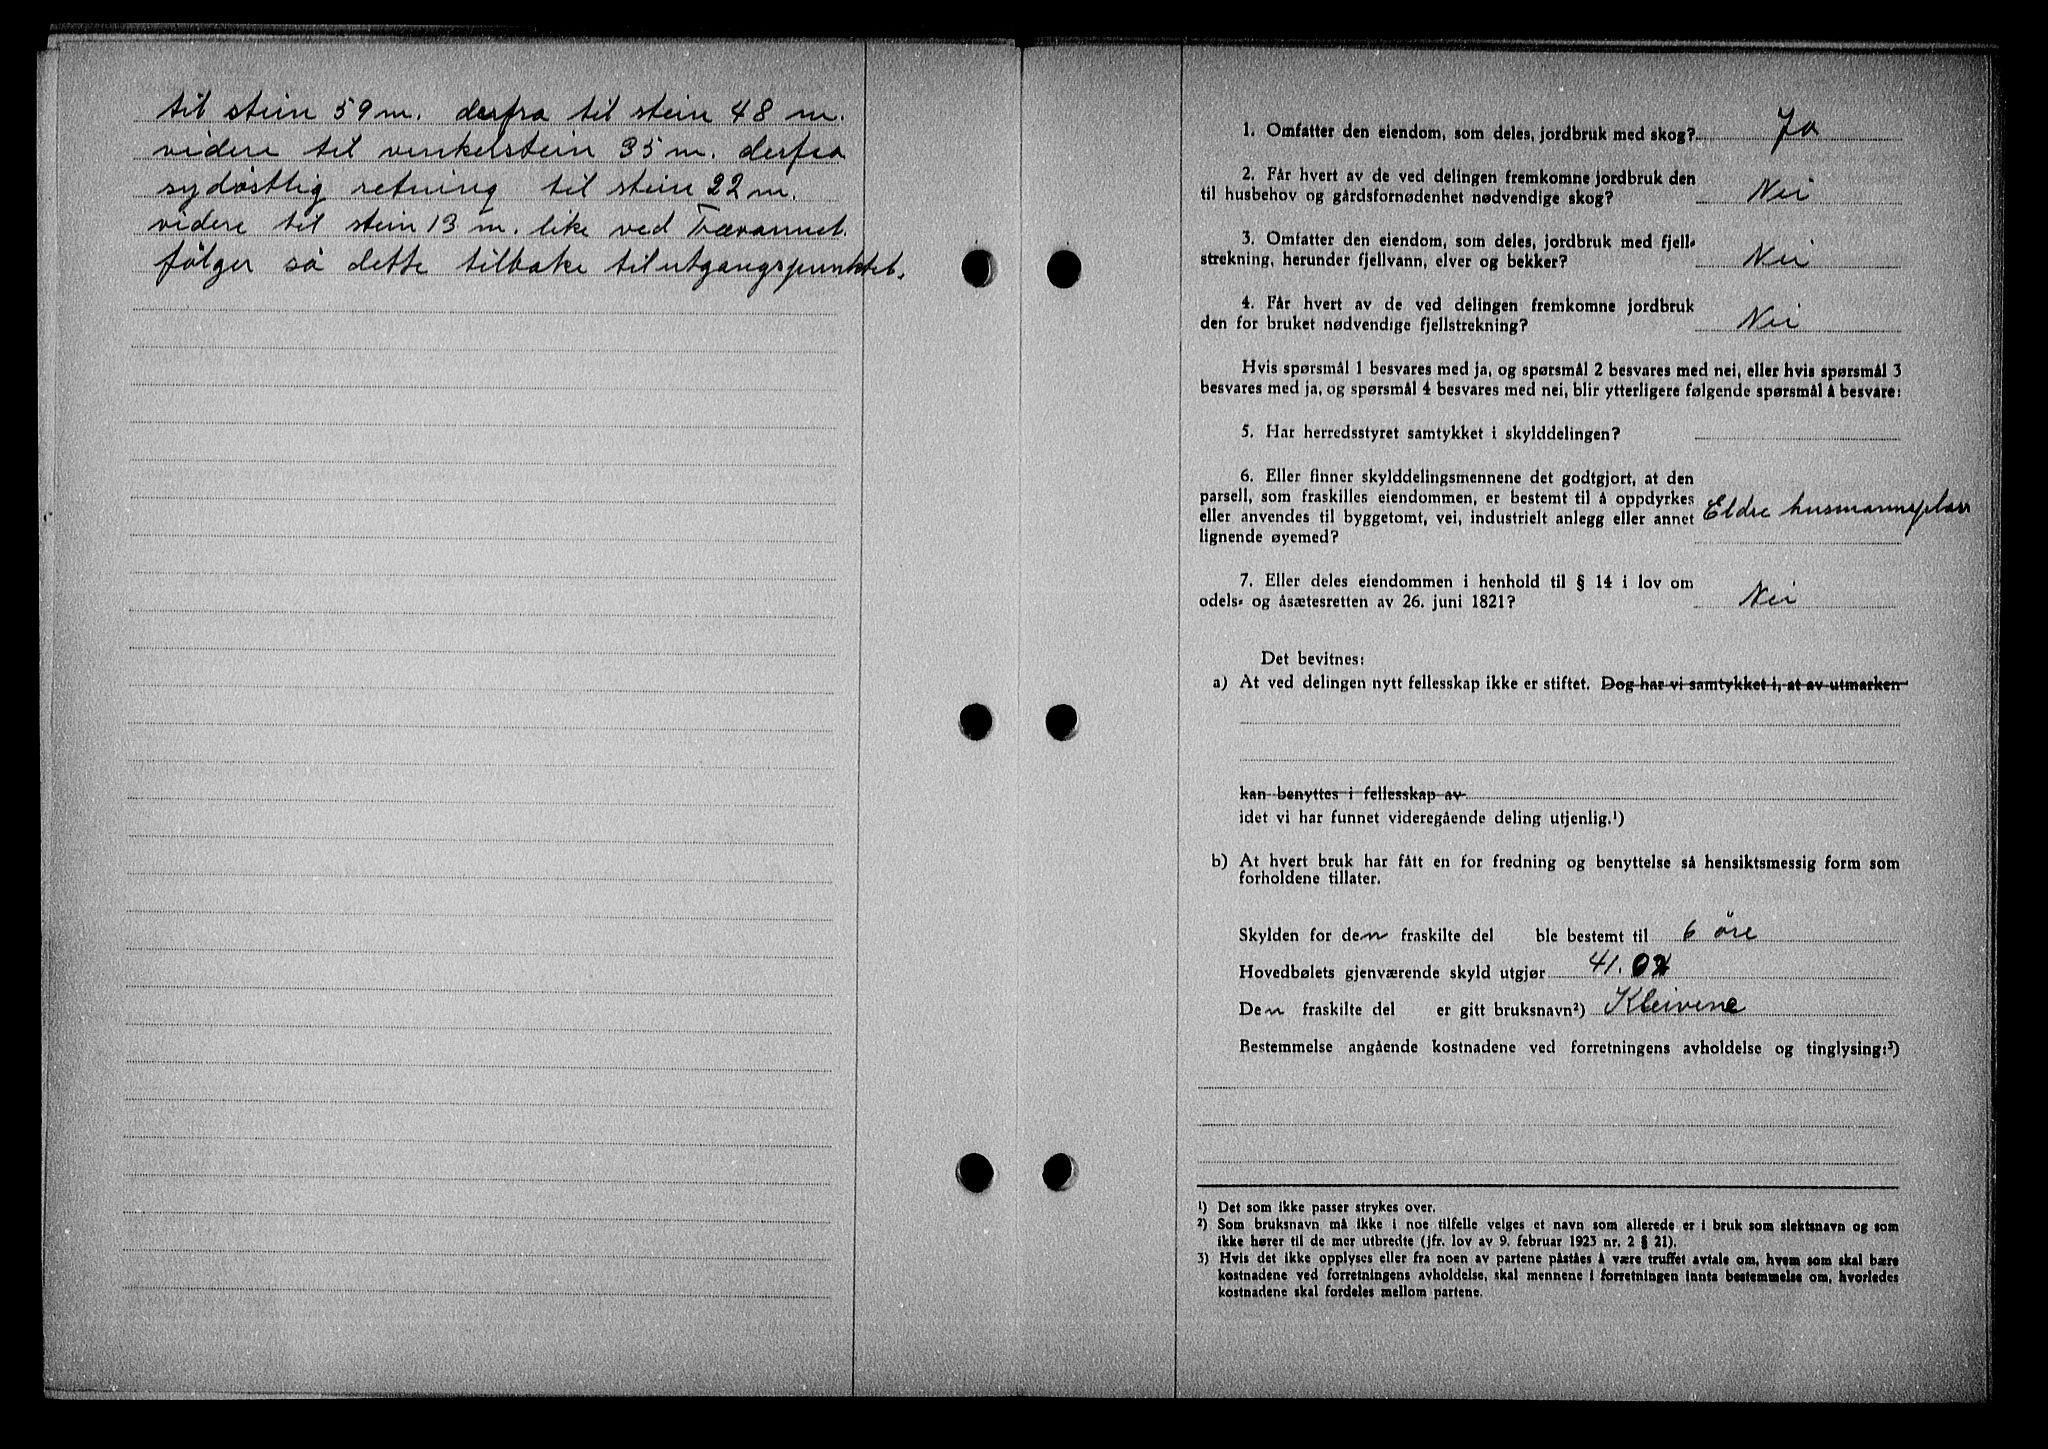 til stein 59 m. derfra til stein 48 m.
videre til vinkelstein 35 m. derfra
sydöstlig retning til stein 22 m.
videre til stein 13 m. like ved Tævannet.
følger så dette tilbake til utgangspunktet.
1. Omfatter den eiendom, som deles, jordbruk med skog? Ja
2. Får hvert av de ved delingen fremkomne jordbruk den
til husbehov og gårdsfornødenhet nødvendige skog? Nei
3. Omfatter den eiendom, som deles, jordbruk med fjell-
strekning, herunder fjellvann, elver og bekker? Nei
4. Får hvert av de ved delingen fremkomne jordbruk
den for bruket nødvendige fjellstrekning? Nei
Hvis spørsmål 1 besvares med ja, og spørsmål 2 besvares med nei, eller hvis spørsmål 3
besvares med ja, og spørsmål 4 besvares med nei, blir ytterligere følgende spørsmål å besvare:
5. Har herredsstyret samtykket i skylddelingen?
6. Eller finner skylddelingsmennene det godtgjort, at den
parsell, som fraskilles eiendommen, er bestemt til å oppdyrkes
eller anvendes til byggetomt, vei, industrielt anlegg eller annet Eldre husmannsplass
lignende øyemed?
7. Eller deles eiendommen i henhold til § 14 i lov om
odels- og åsætesretten av 26. juni 1821? Nei
Det bevitnes:
a) At ved delingen nytt fellesskap ikke er stiftet. Dog har vi samtykket i, at av utmarken
kan benyttes i fellesskap av
idet vi har funnet videregående deling utjenlig.¹)
b) At hvert bruk har fått en for fredning og benyttelse så hensiktsmessig form som
forholdene tillater.
Skylden for den fraskilte del ble bestemt til 6 öre
Hovedbølets gjenværende skyld utgjør 41.02
Den fraskilte del er gitt bruksnavn²) Kleivene
Bestemmelse angående kostnadene ved forretningens avholdelse og tinglysing:³)
¹) Det som ikke passer strykes over.
²) Som bruksnavn må ikke i noe tilfelle velges et navn som allerede er i bruk som slektsnavn og som
ikke hører til de mer utbredte (jfr. lov av 9. februar 1923 nr. 2 § 21).
3) Hvis det ikke opplyses eller fra noen av partene påståes å være truffet avtale om, hvem som skal bære
kostnadene ved forretningens avholdelse, skal mennene i forretningen innta bestemmelse om, hvorledes
kostnadene skal fordeles mellom partene.